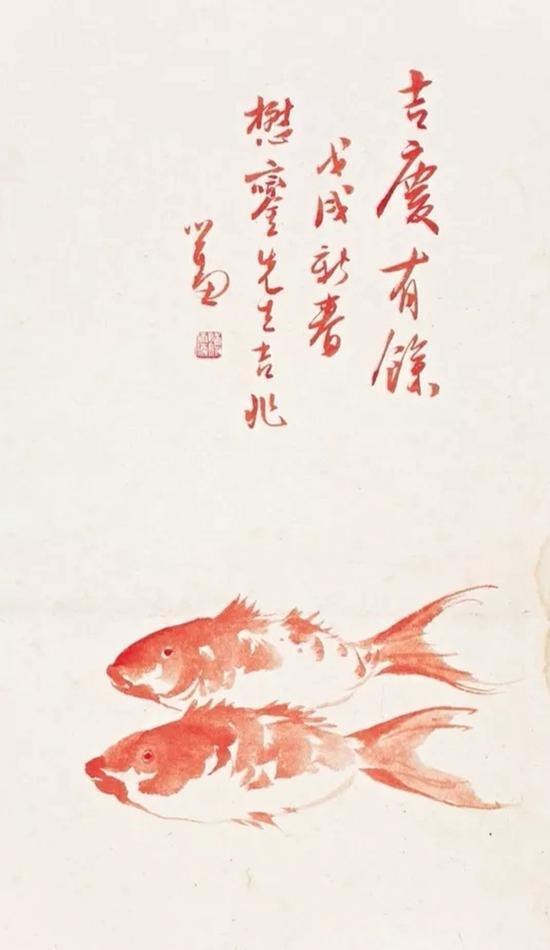 吉慶有餘
戊戌新春
懋鑾先生吉兆
心畬